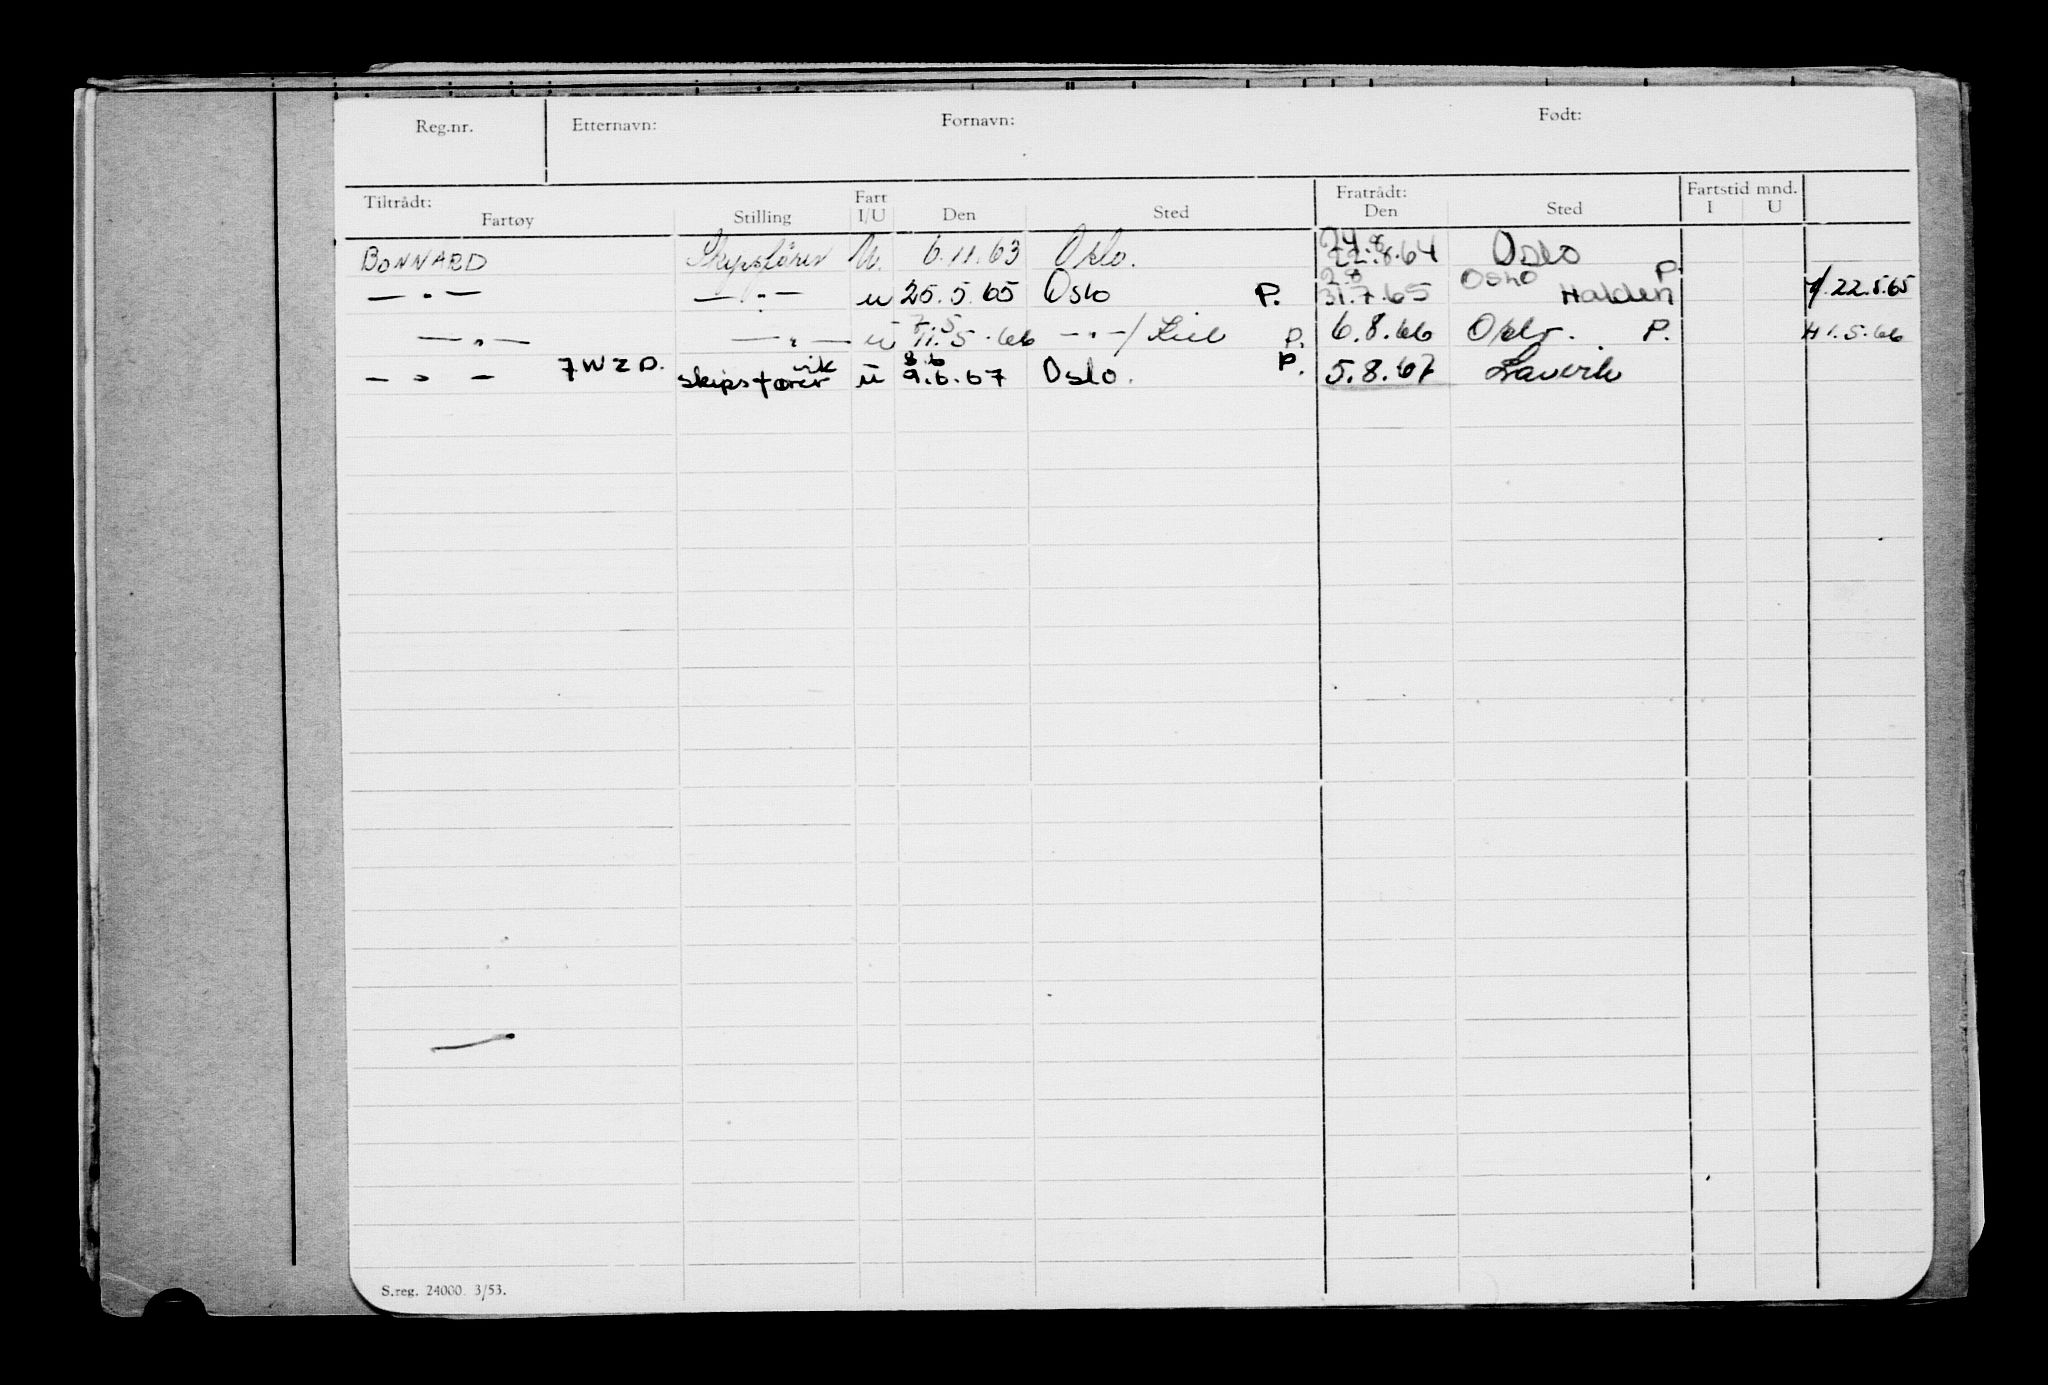 Reg.nr. Etternavn: Fornavn: Født:
Tiltrådt: Fartøy Stilling Fart I/U Den Sted Fratrådt: Den Sted Fartstid mnd. I U
BONNARD Skipsfører U. 6.11.63 Oslo. 24.8 22.8.64 Oslo
— " — — " — u 25.5.65 Oslo P. 2.8 31.7.65 Oslo Halden P. 22.5.65
— " — — " — u 7.5 11.5.66 — " — / Kiel P. 6.8.66 Oslo. P. H 1.5.66
— " — JWZD. skipsfører vik u 8.6 9.6.67 Oslo. P. 5.8.67 Larvik
S.reg. 24000 3/53.